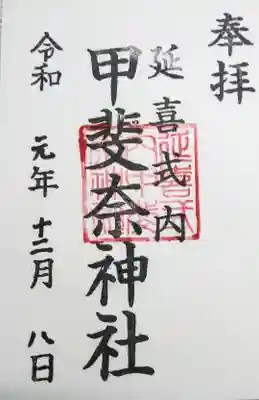 奉拝
延喜式内
甲斐奈神社
令和元年十二月八日